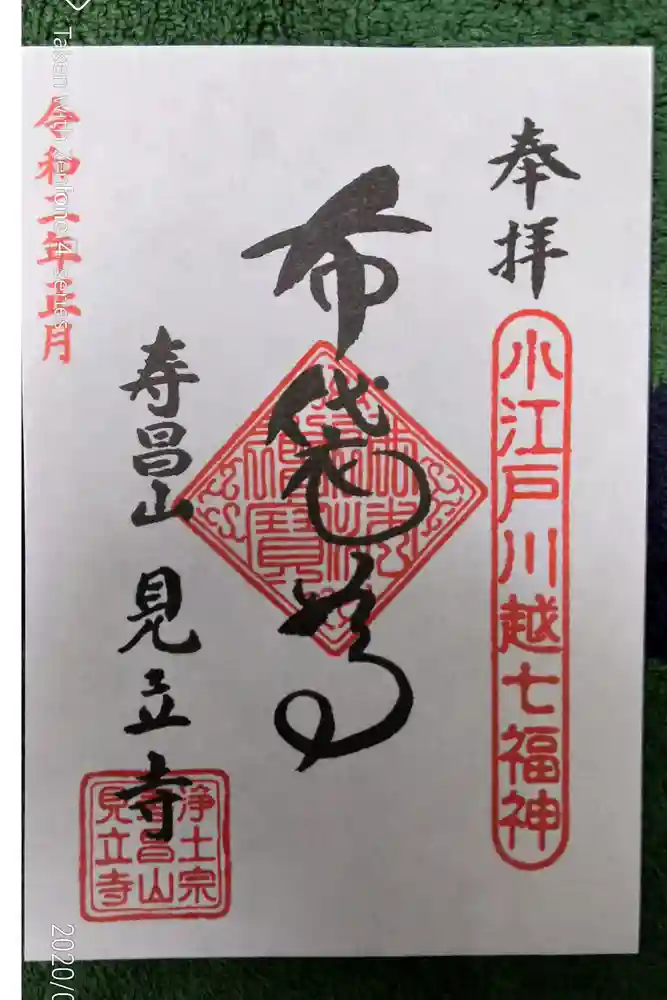 奉拝
小江戸川越七福神
布袋尊
寿昌山 見立寺
浄土宗
寿昌山
見立寺
令和二年正月
Taken with Zenfone 4 series
2020/0